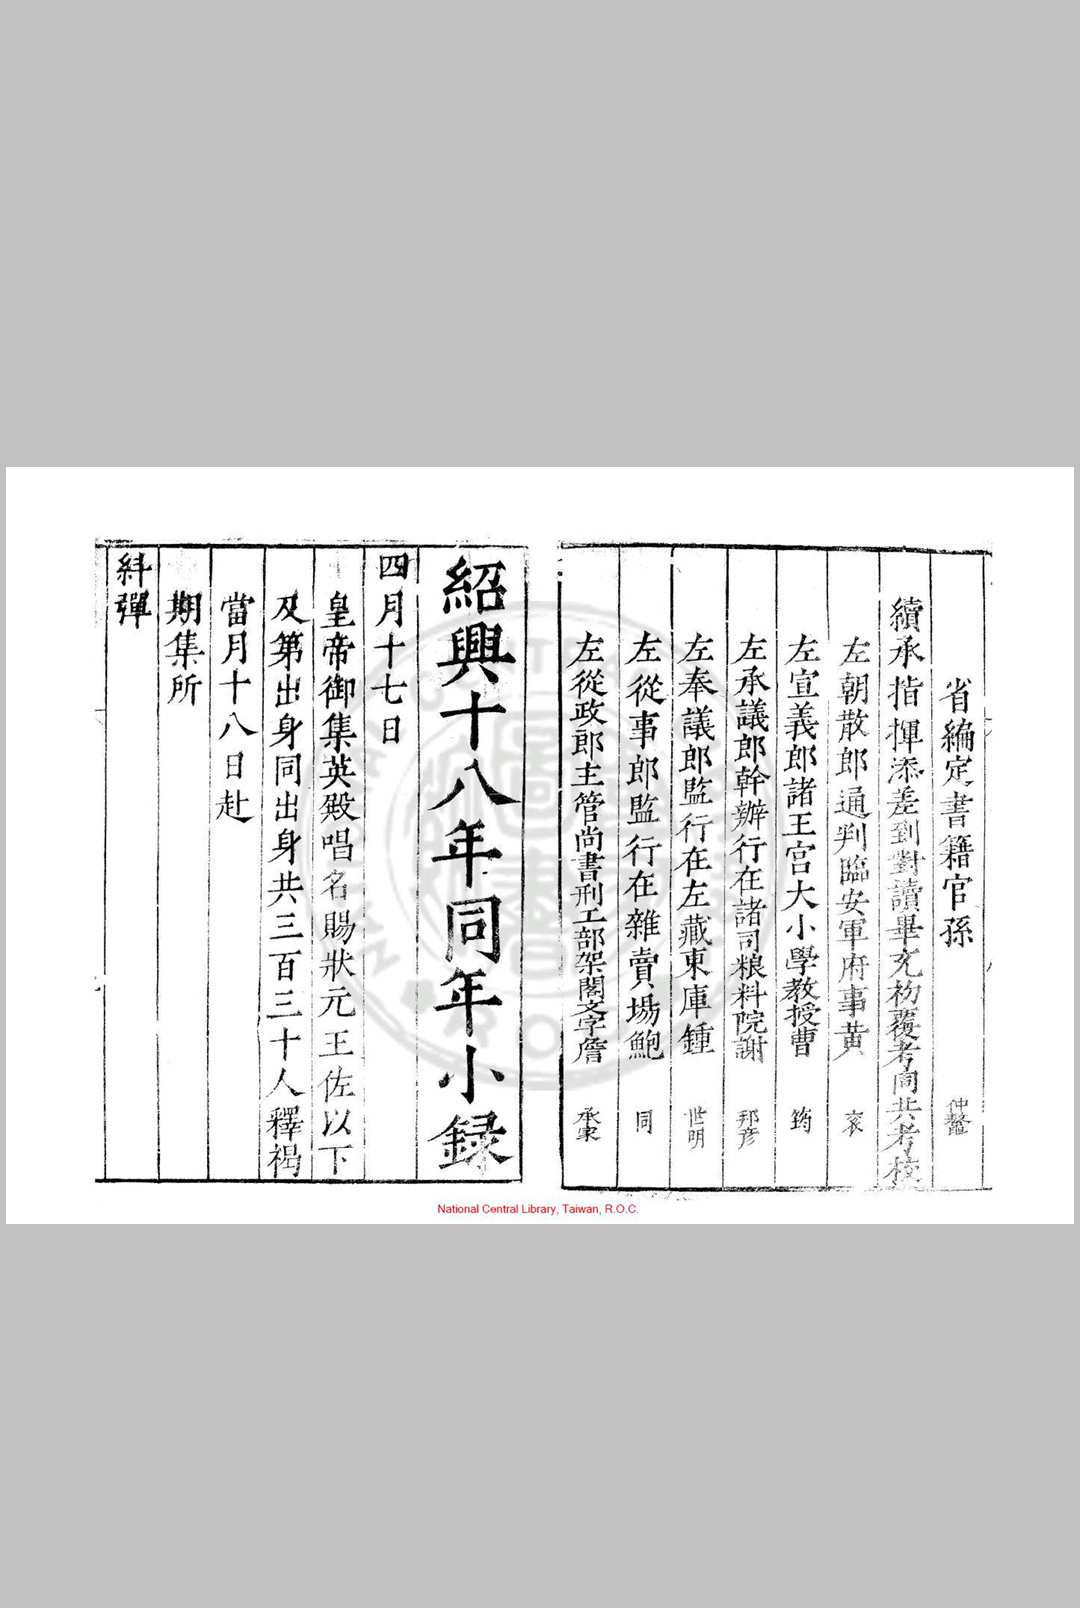 省編定書籍官孫 仲鼇
續承指揮添差到對讀畢充初覆考同共考校
左朝散郎通判臨安軍府事黃 袞
左宣義郎諸王宫大小學教授曹 筠
左承議郎幹辦行在諸司粮料院謝 邦彦
左奉議郎監行在左藏東庫鍾 世明
左從事郎監行在雜賣場鮑 同
左從政郎主管尚書刑工部架閣文字詹 承家
紹興十八年同年小録
四月十七日
皇帝御集英殿唱名賜狀元王佐以下
及第出身同出身共三百三十人釋褐
當月十八日赴
期集所
糾彈
National Central Library, Taiwan, R.O.C.